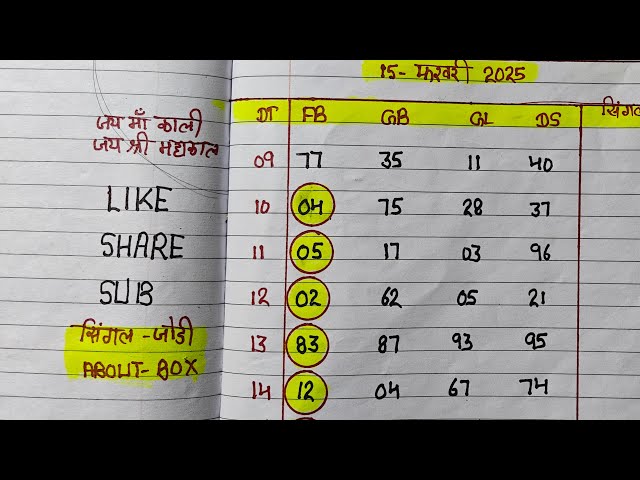 15- फरवरी 2025
जय माँ काली
जय श्री महाकाल
LIKE
SHARE
SUB
सिंगल - जोडी
ABOUT- BOX
DT FB GB GL DS सिंगल
09 77 35 11 40
10 04 75 28 37
11 05 17 03 96
12 02 62 05 21
13 83 87 93 95
14 12 04 67 74